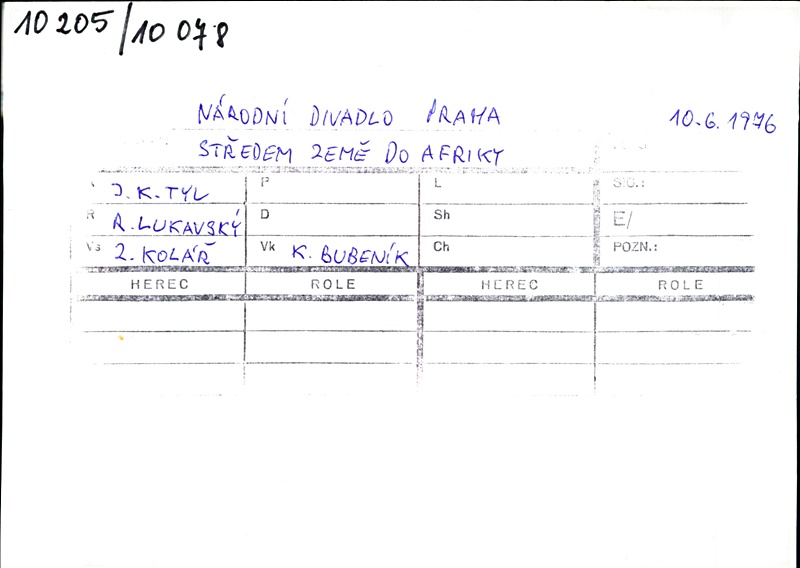 10 205/10 078
NÁRODNÍ DIVADLO PRAHA 10.6.1976
STŘEDEM ZEMĚ DO AFRIKY
J. K. TYL P L SIG.:
R R. LUKAVSKÝ D Sh E/
Vs Z. KOLÁŘ Vk K. BUBENÍK Ch POZN.:
HEREC ROLE HEREC ROLE